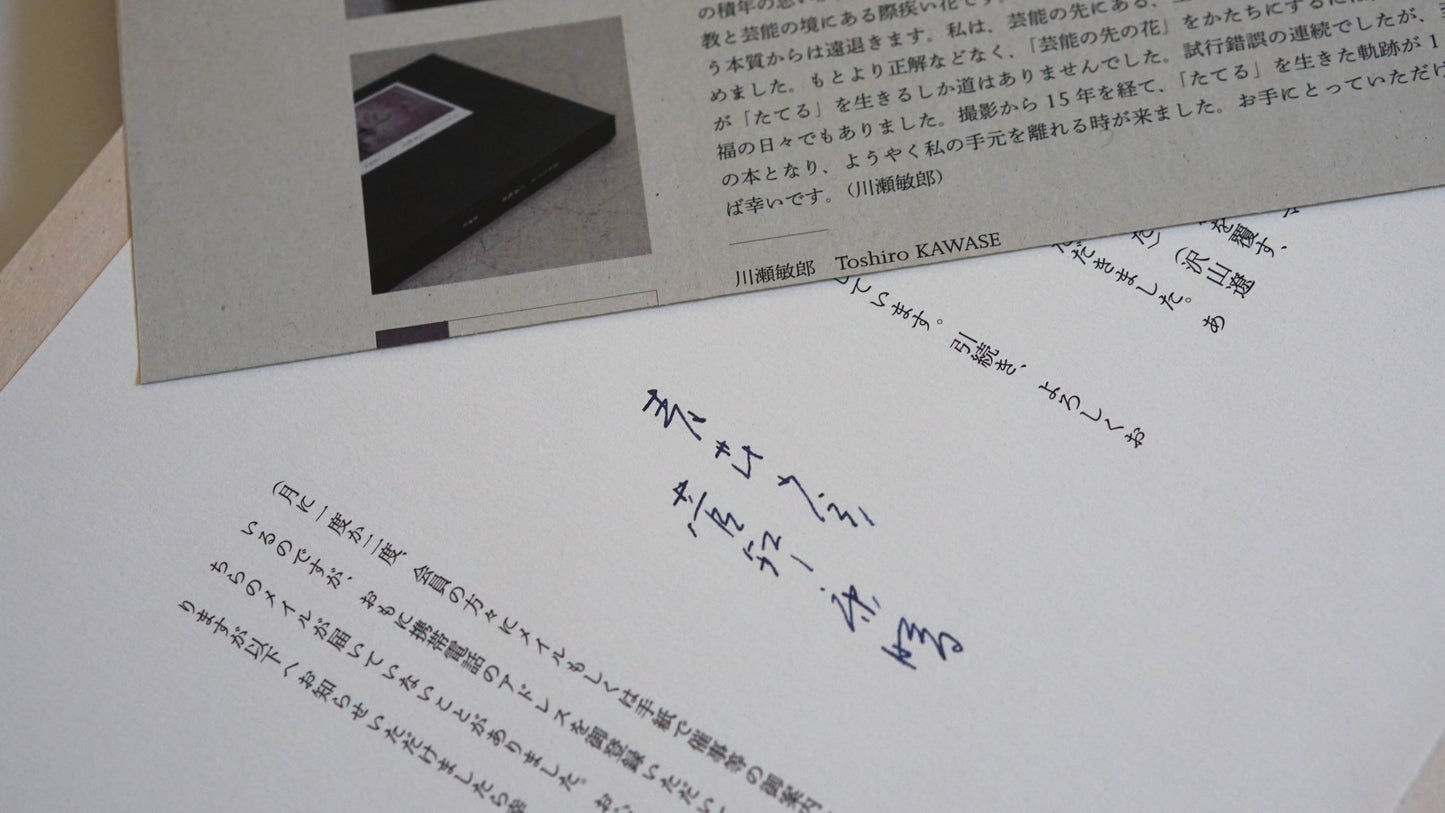 の積年の思い
教と芸能の境にある際疾い花です。
う本質からは遠退きます。私は、芸能の先にある、
めました。もとより正解などなく、「芸能の先の花」をかたちにするには
が「たてる」を生きるしか道はありませんでした。試行錯誤の連続でしたが、
福の日々でもありました。撮影から15年を経て、「たてる」を生きた軌跡が1
の本となり、ようやく私の手元を離れる時が来ました。お手にとっていただけ
ば幸いです。（川瀬敏郎）
川瀬敏郎 Toshiro KAWASE
を覆す、
た）（沢山遼
だきました。あ
しています。引続き、よろしくお
（月に一度か二度、会員の方々にメイルもしくは手紙で催事等の御案内
いるのですが、おもに携帯電話のアドレスを御登録いただい
ちらのメイルが届いていないことがありました。お
りますが以下へお知らせいただけましたら